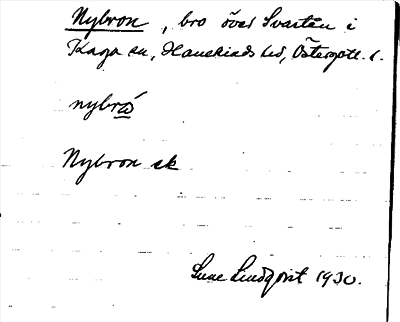 Nybron, bro över Svartån i
Kaga sn, Hanekinds hd, Östergötl. l.
nybró
Nybron sk
Sune Lindqvist 1930.